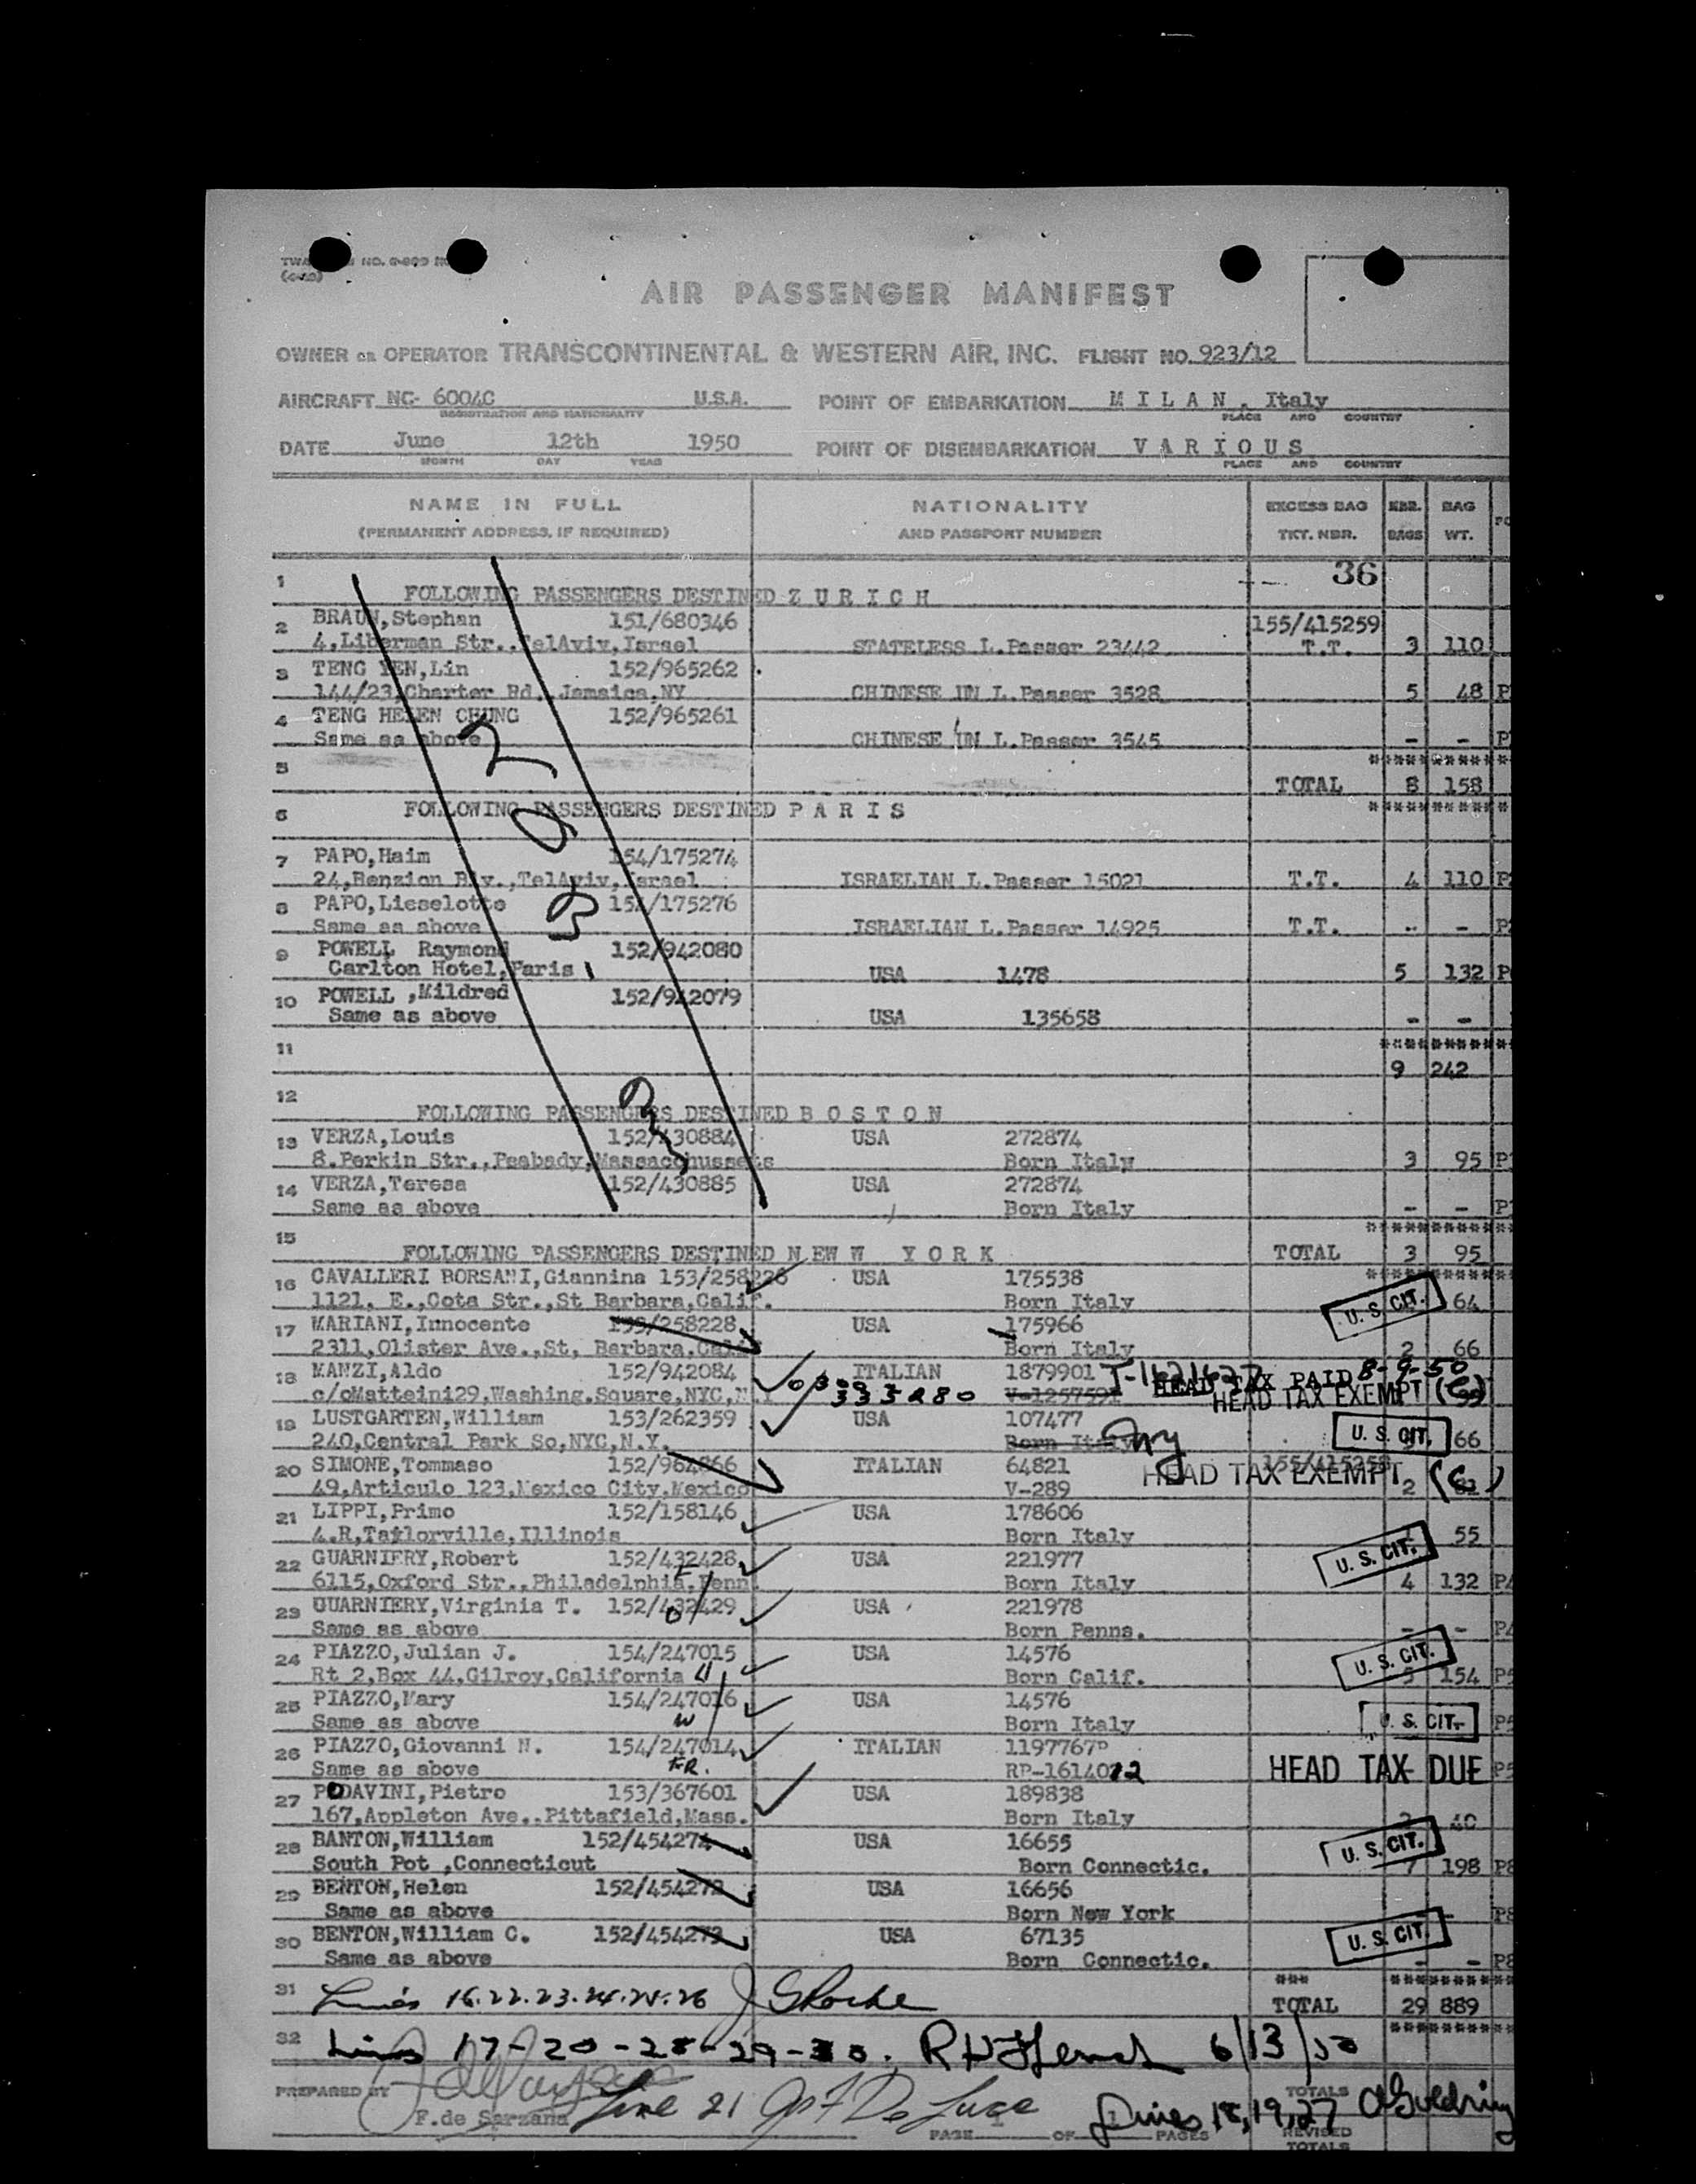 AIR PASSENGER MANIFEST
OWNER OR OPERATOR TRANSCONTINENTAL & WESTERN AIR, INC. FLIGHT NO. 923/12
AIRCRAFT NC- 6004C U.S.A. POINT OF EMBARKATION M I L A N , Italy
REGISTRATION AND NATIONALITY PLACE AND COUNTRY
DATE June 12th 1950 POINT OF DISEMBARKATION V A R I O U S
MONTH DAY YEAR PLACE AND COUNTRY
NAME IN FULL NATIONALITY EXCESS BAG NBR. BAG
(PERMANENT ADDRESS, IF REQUIRED) AND PASSPORT NUMBER TKT. NBR. BAGS WT.
36
1 FOLLOWING PASSENGERS DESTINED Z U R I C H
2 BRAUN,Stephan 151/680346 155/415259
4,Liberman Str.,TelAviv,Israel STATELESS L.Passer 23442 T.T. 3 110
3 TENG YEN,Lin 152/965262
144/23,Charter Rd, Jamaica,NY CHINESE UN L.Passer 3528 5 48
4 TENG HELEN CHUNG 152/965261
Same as above CHINESE UN L.Passer 3545 - -
5 TOTAL 8 158
6 FOLLOWING PASSENGERS DESTINED P A R I S
7 PAPO,Haim 154/175274
24,Benzion Blv.,TelAviv,Israel ISRAELIAN L.Passer 15021 T.T. 4 110
8 PAPO,Lieselotte 154/175276
Same as above ISRAELIAN L.Passer 14925 T.T. - -
9 POWELL Raymond 152/942080
Carlton Hotel,Paris USA 1478 5 132
10 POWELL ,Mildred 152/942079
Same as above USA 135658 - -
11 9 242
12 FOLLOWING PASSENGERS DESTINED B O S T O N
13 VERZA,Louis 152/430884 USA 272874
8.Perkin Str.,Peabody,Massacchussets Born Italy 3 95
14 VERZA,Teresa 152/430885 USA 272874
Same as above Born Italy - -
15 FOLLOWING PASSENGERS DESTINED N EW W Y O R K TOTAL 3 95
16 CAVALLERI BORSANI,Giannina 153/258226 USA 175538
1121. E.,Cota Str.,St Barbara,Calif. Born Italy U. S. CIT. 64
17 MARIANI,Innocente 153/258228 USA 175966
2311,Olister Ave.,St, Barbara.Calif Born Italy 2 66
18 MANZI,Aldo 152/942084 ITALIAN 1879901 HEAD TAX PAID 8-9-50
c/oMatteini29,Washing.Square,NYC,N.Y V-1257591 HEAD TAX EXEMPT
19 LUSTGARTEN,William 153/262359 USA 107477
240,Central Park So,NYC,N.Y. Born Italy NY U. S. CIT. 66
20 SIMONE,Tommaso 152/964866 ITALIAN 64821 155/415258
49,Articulo 123,Mexico City,Mexico V-289 HEAD TAX EXEMPT 2
21 LIPPI,Primo 152/158146 USA 178606
4.R,Taylorville,Illinois Born Italy 55
22 GUARNIERY,Robert 152/432428 USA 221977 U. S. CIT.
6115,Oxford Str.,Philadelphia,Penn. Born Italy 4 132
23 GUARNIERY,Virginia T. 152/432429 USA 221978
Same as above Born Penns. - -
24 PIAZZO,Julian J. 154/247015 USA 14576 U. S. CIT.
Rt 2,Box 44,Gilroy,California Born Calif. 5 154
25 PIAZZO,Mary 154/247016 USA 14576
Same as above Born Italy U. S. CIT.
26 PIAZZO,Giovanni N. 154/247014 ITALIAN 1197767P
Same as above RP-1614012 HEAD TAX DUE
27 PODAVINI,Pietro 153/367601 USA 189838
167,Appleton Ave.,Pittafield,Mass. Born Italy 2 40
28 BANTON,William 152/454274 USA 16655 U. S. CIT.
South Pot ,Connecticut Born Connectic. 7 198
29 BENTON,Helen 152/454272 USA 16656
Same as above Born New York
30 BENTON,William C. 152/454273 USA 67135 U. S. CIT.
Same as above Born Connectic. - -
31 Lines 16.22.23.24.25.26 TOTAL 29 889
32 Lines 17-20-28-29-30. 6/13/50
PREPARED BY Line 21 Jos F De Luca Lines 18,19,27 TOTALS
F.de Sarzana PAGE 1 OF 1 PAGES REVISED
TOTALS